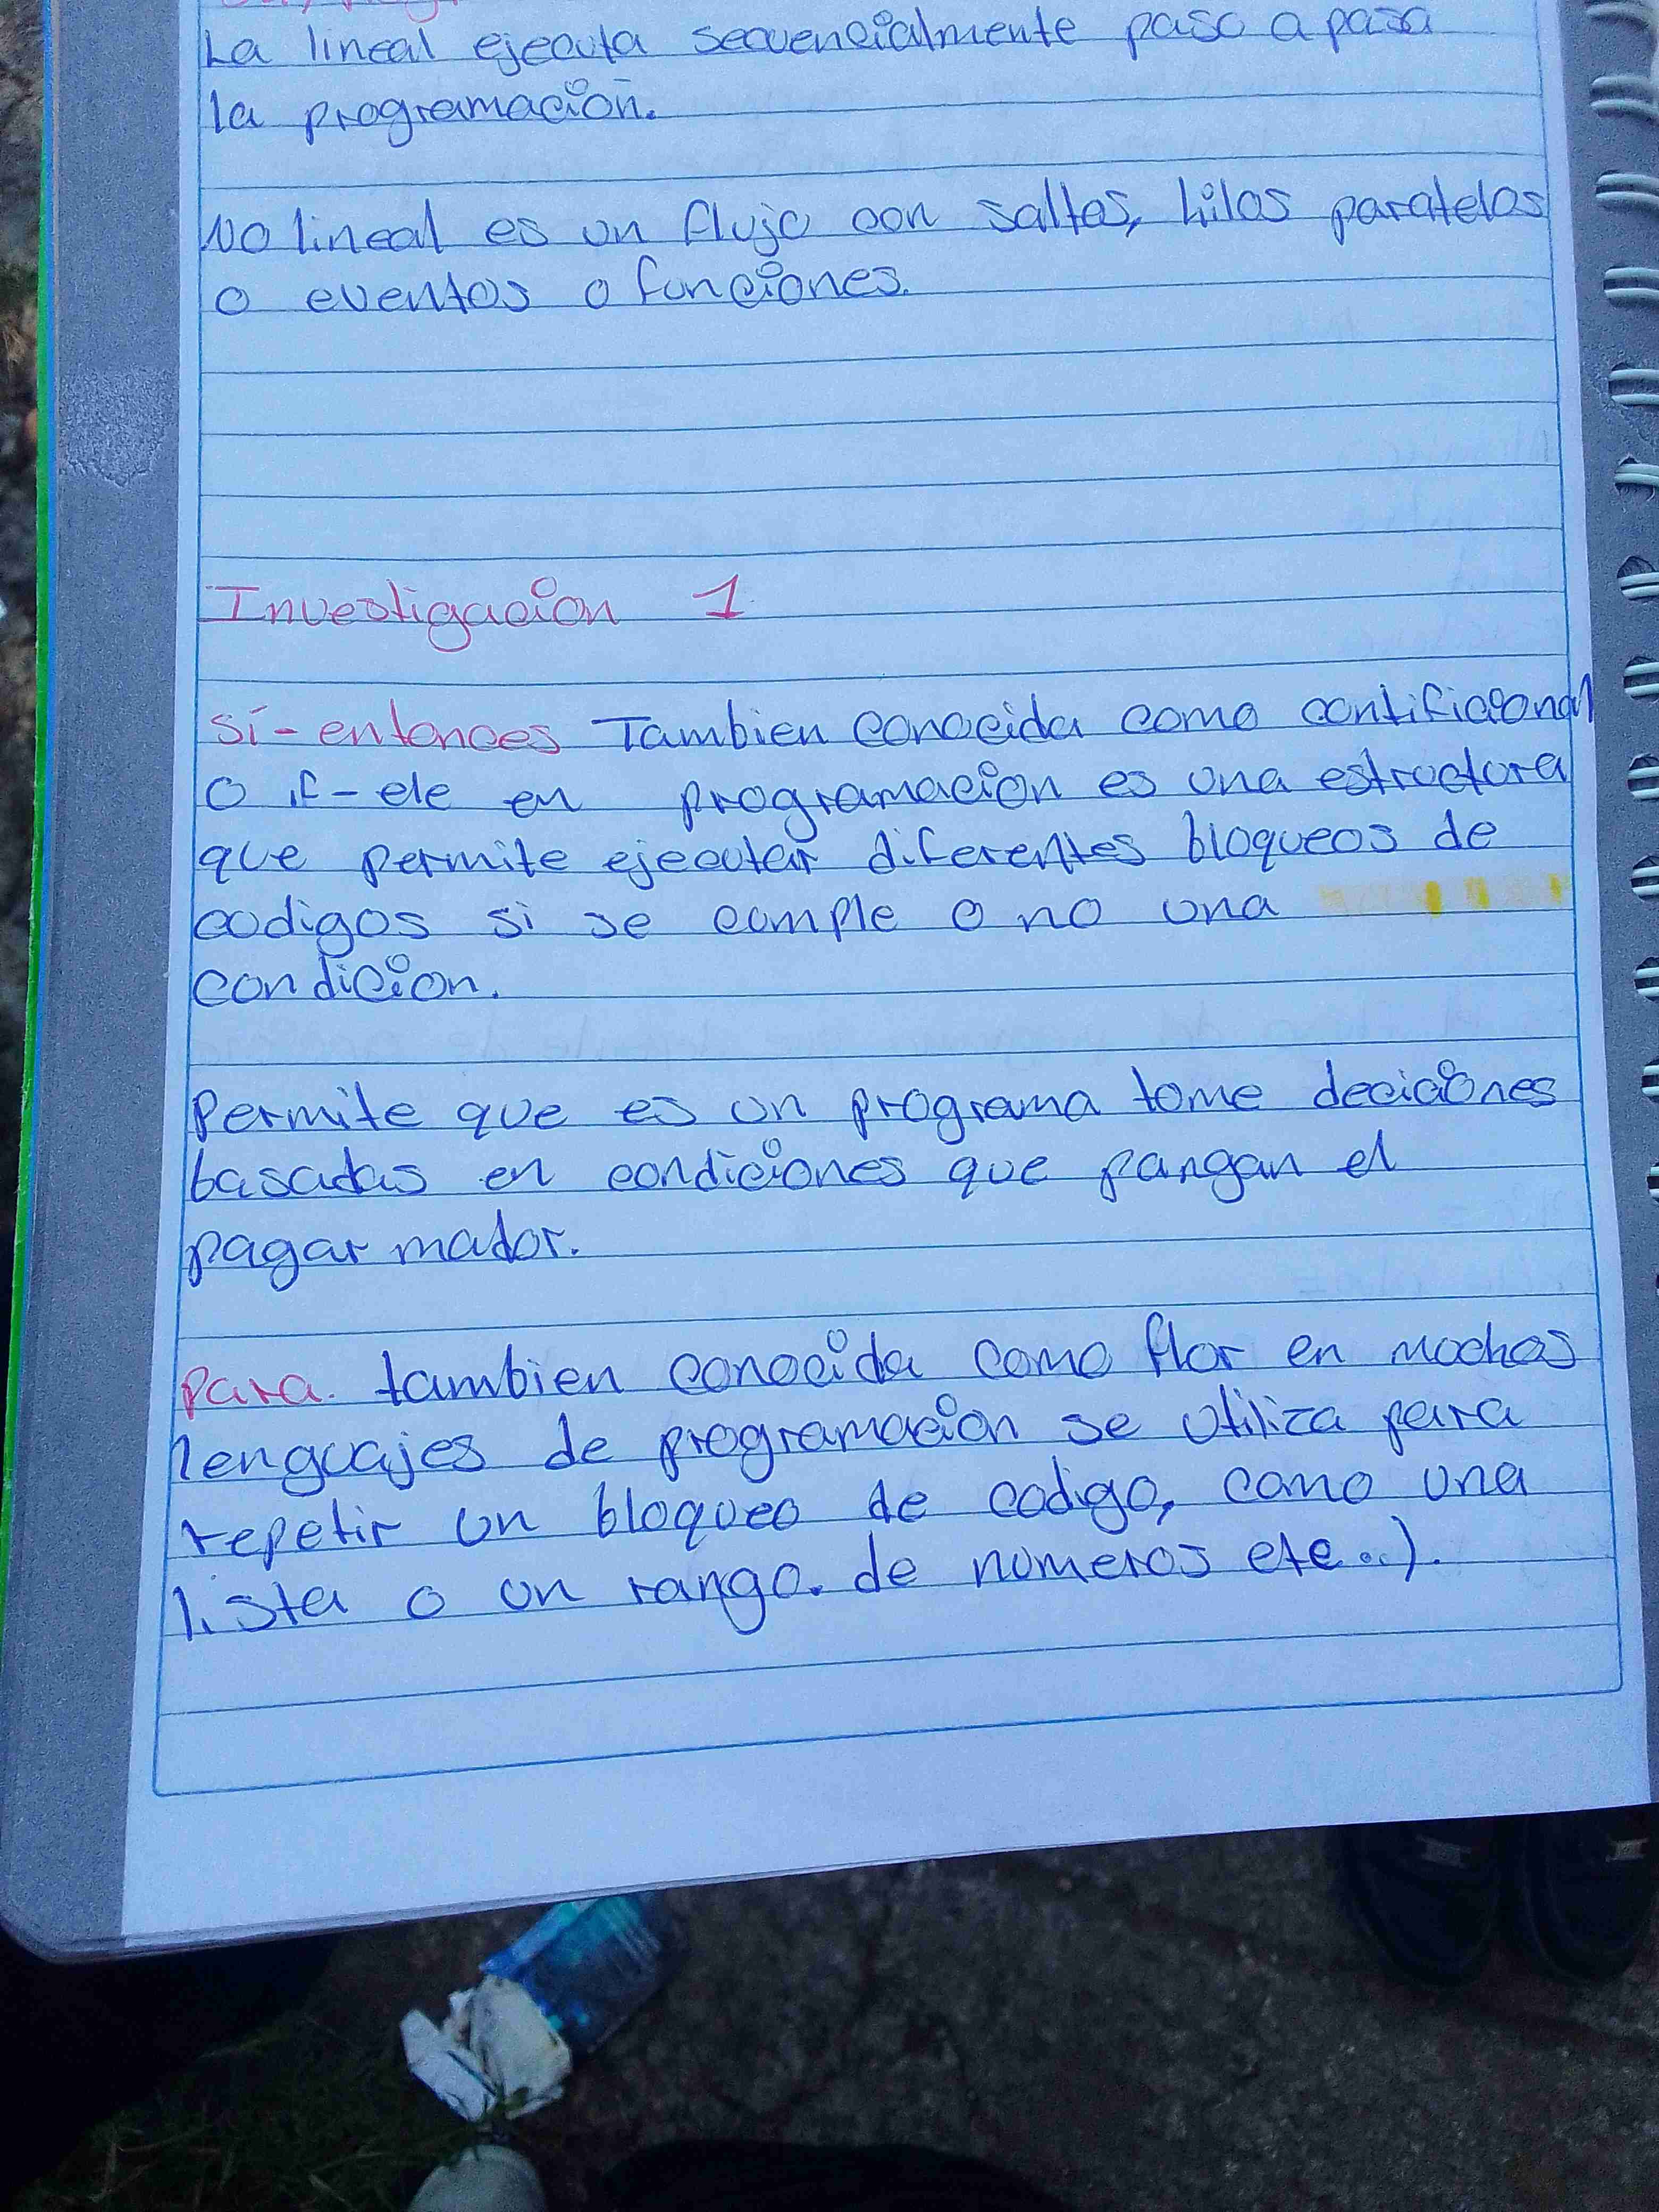 La lineal ejecuta secuencialmente paso a paso
la programación.
No lineal es un flujo con saltos, hilos paratelos
o eventos o funciones.
Investigacion 1
Sí-entonces Tambien conocida como contificional
o if-ele en programacion es una estructura
que permite ejecutar diferentes bloqueos de
codigos si se cumple o no una
condicion.
Permite que es un programa tome deciciones
basadas en condiciones que pangan el
pagar mador.
Para. tambien conocida como flor en muchos
lenguajes de programacion se utiliza para
repetir un bloqueo de codigo, como una
lista o un rango. de numeros etc...).